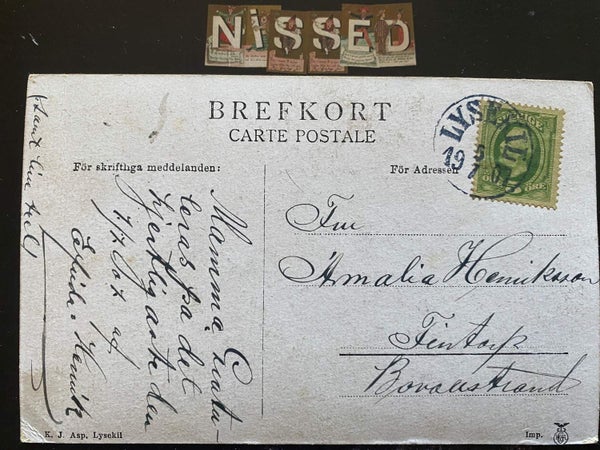 NiSSED
BREFKORT
CARTE POSTALE
För skriftliga meddelanden:
För Adressen
LYSEKIL
19
SVERIGE
ÖRE
Mamma Gratu-
leras på det
hjertligaste den
7/7 07 af
Henrik
Fru
Amalia Henriksson
Fintorp
Bovallstrand
K. J. Asp, Lysekil
Imp.